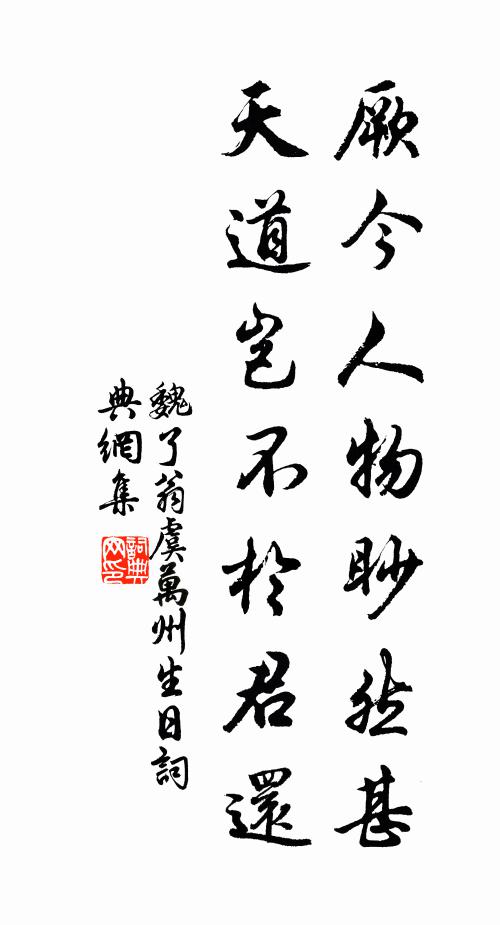 厥今人物眇然甚
天道豈不於君還
魏了翁虞萬州生日詞
典網集
詞典網印